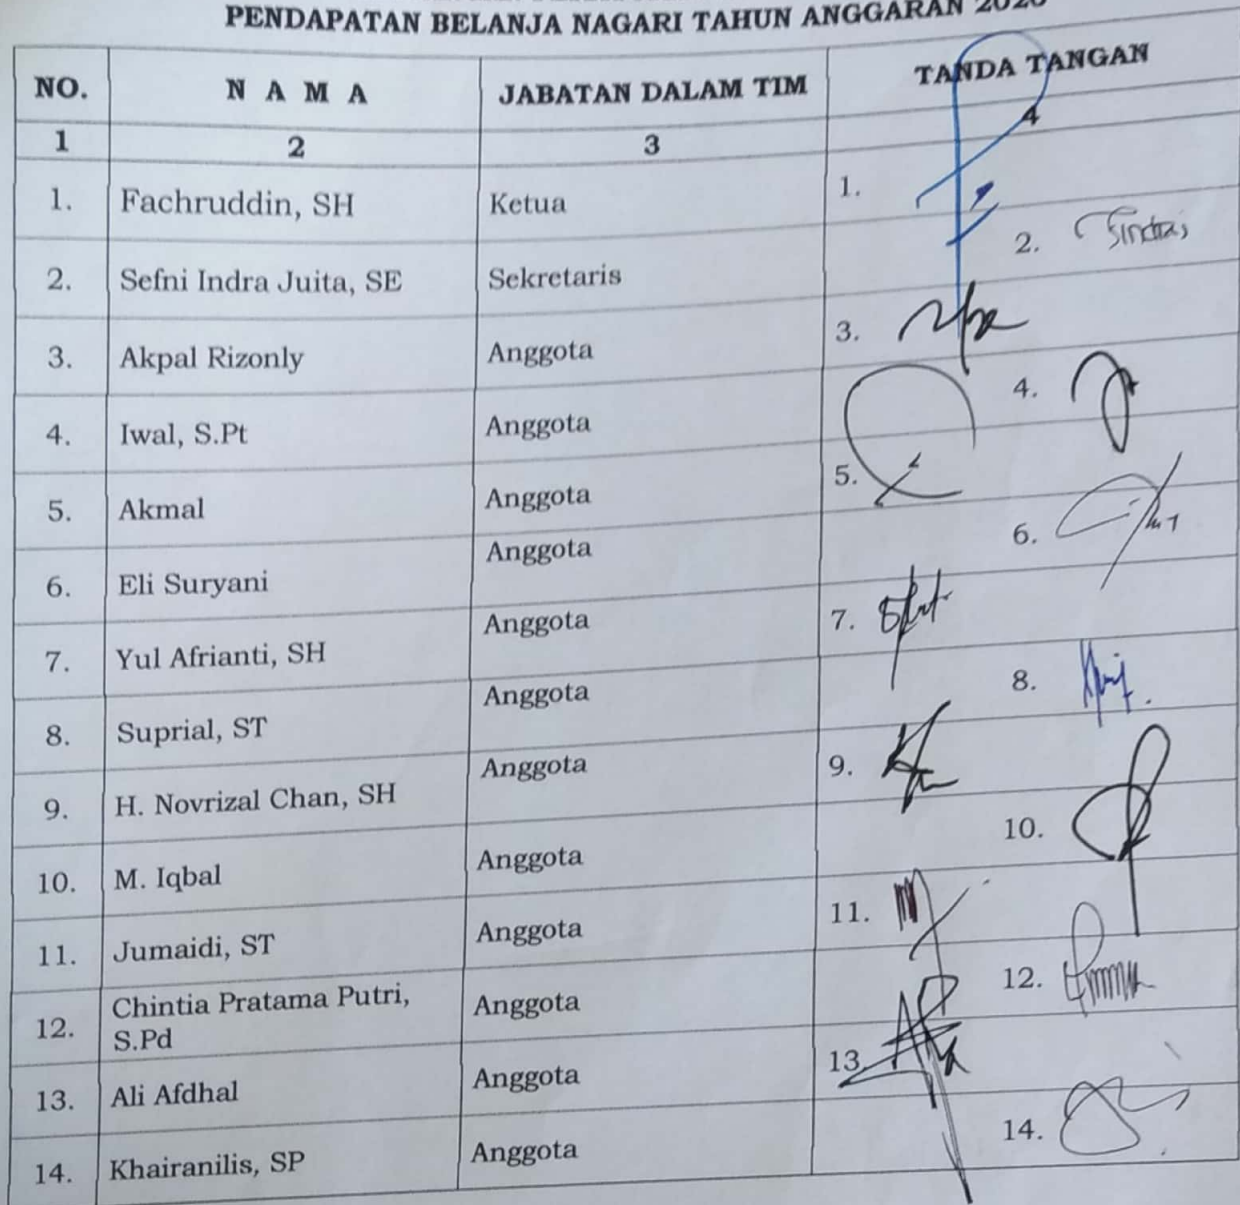 PENDAPATAN BELANJA NAGARI TAHUN ANGGARAN 2020
NO. N A M A JABATAN DALAM TIM TANDA TANGAN
1 2 3 4
1. Fachruddin, SH Ketua 1.
2. Sefni Indra Juita, SE Sekretaris 2.
3. Akpal Rizonly Anggota 3.
4. Iwal, S.Pt Anggota 4.
5. Akmal Anggota 5.
6. Eli Suryani Anggota 6.
7. Yul Afrianti, SH Anggota 7.
8. Suprial, ST Anggota 8.
9. H. Novrizal Chan, SH Anggota 9.
10. M. Iqbal Anggota 10.
11. Jumaidi, ST Anggota 11.
12. Chintia Pratama Putri, Anggota 12.
S.Pd
13. Ali Afdhal Anggota 13.
14. Khairanilis, SP Anggota 14.